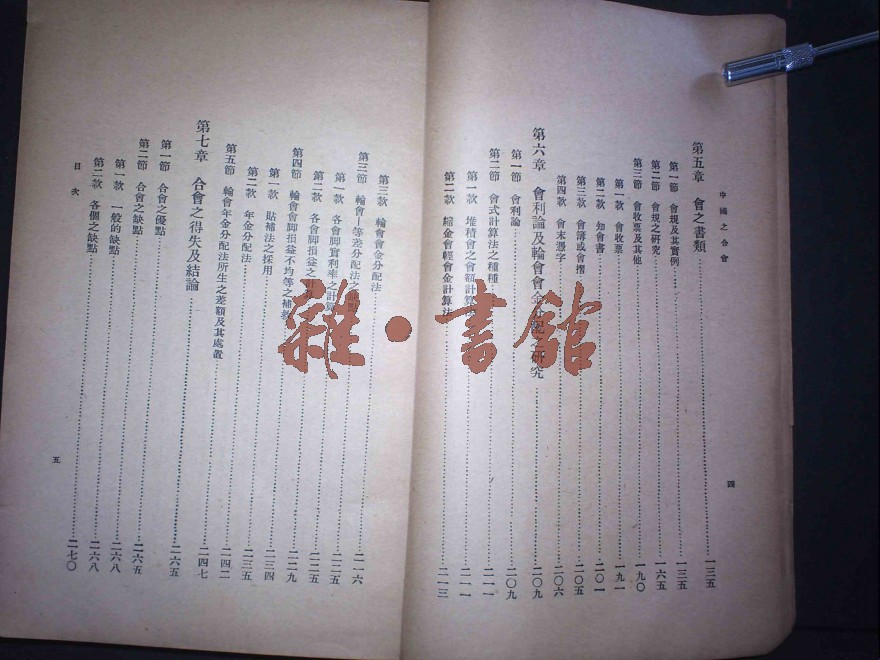 中國之合會
四
第五章 會之書類……一三五
第一節 會規及其實例……一三五
第二節 會規之研究……一六五
第三節 會收票及其他……一九〇
第一款 會收票……一九一
第二款 知會書……二〇一
第三款 會簿或會摺……二〇五
第四款 會末憑字……二〇六
第六章 會利論及輪會會金分配之研究……二〇九
第一節 會利論……二〇九
第二節 會式計算法之種種……二一一
第一款 堆積會之會額計算法……二一一
第二款 縮金會輕會金計算法……二一三
第三款 輪會會金分配法……二一六
第三節 輪會—等差分配法之缺點……二二五
第一款 各會脚實利率之計算……二二五
第二款 各會脚損益之計算……二二九
第四節 輪會會脚損益不均等之補救……二三四
第一款 貼補法之採用……二三五
第二款 年金分配法……二四二
第五節 輪會年金分配法所生之差額及其處置……二四七
第七章 合會之得失及結論……二六五
第一節 合會之優點……二六五
第二節 合會之缺點……二六八
第一款 一般的缺點……二六八
第二款 各個之缺點……二七〇
目次
五
雜·書館